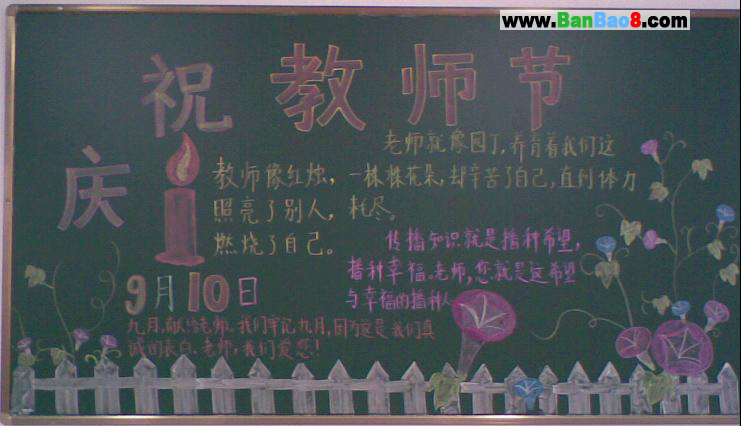 www.BanBao8.com
庆祝教师节
教师像红烛，
照亮了别人，
燃烧了自己。
老师就像园丁，养育着我们这
一株株花朵，却辛苦了自己，直到体力
耗尽。
传播知识就是播种希望，
播种幸福。老师，您就是这希望
与幸福的播种人
9月10日
九月，献给老师。我们牢记九月，因为这是我们真
诚的表白。老师，我们爱您！